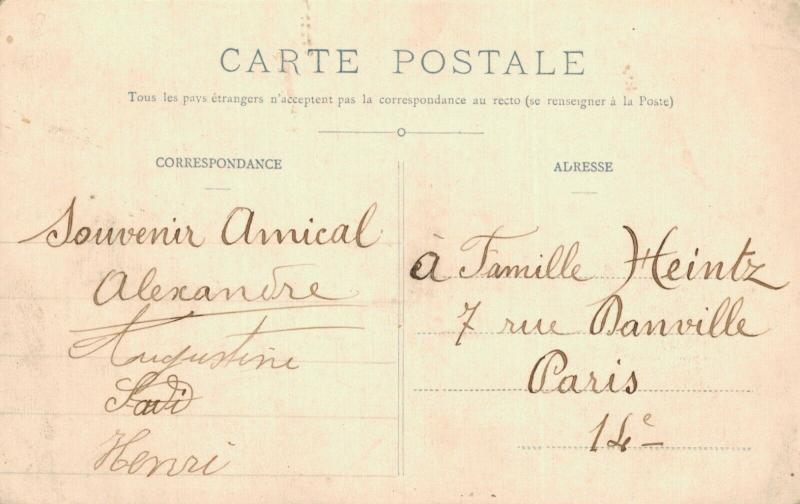 CARTE POSTALE
Tous les pays étrangers n'acceptent pas la correspondance au recto (se renseigner à la Poste)
CORRESPONDANCE
Souvenir Amical
Alexandre
Augustine
Henri
ADRESSE
à Famille Heintz
7 rue Danville
Paris
14e